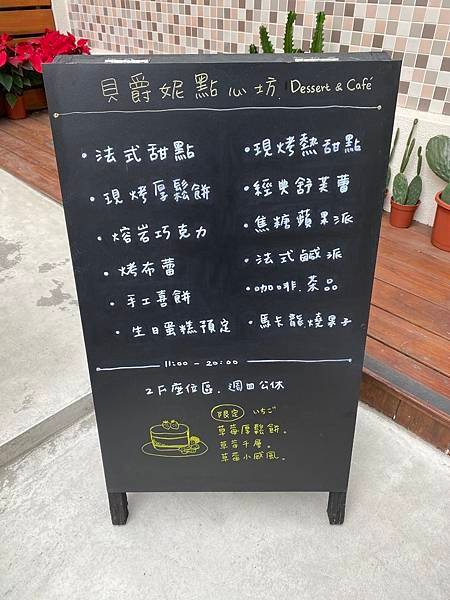 貝爵妮點心坊. Dessert & Café
・法式甜點
・現烤厚鬆餅
・熔岩巧克力
・烤布蕾
・手工喜餅
・生日蛋糕預定
・現烤熱甜點
・經典舒芙蕾
・焦糖蘋果派
・法式鹹派
・咖啡.茶品
・馬卡龍.燒菓子
11:00 - 20:00
2F座位區.週四公休
限定 いちご
草莓厚鬆餅。
草莓千層。
草莓小戚風。